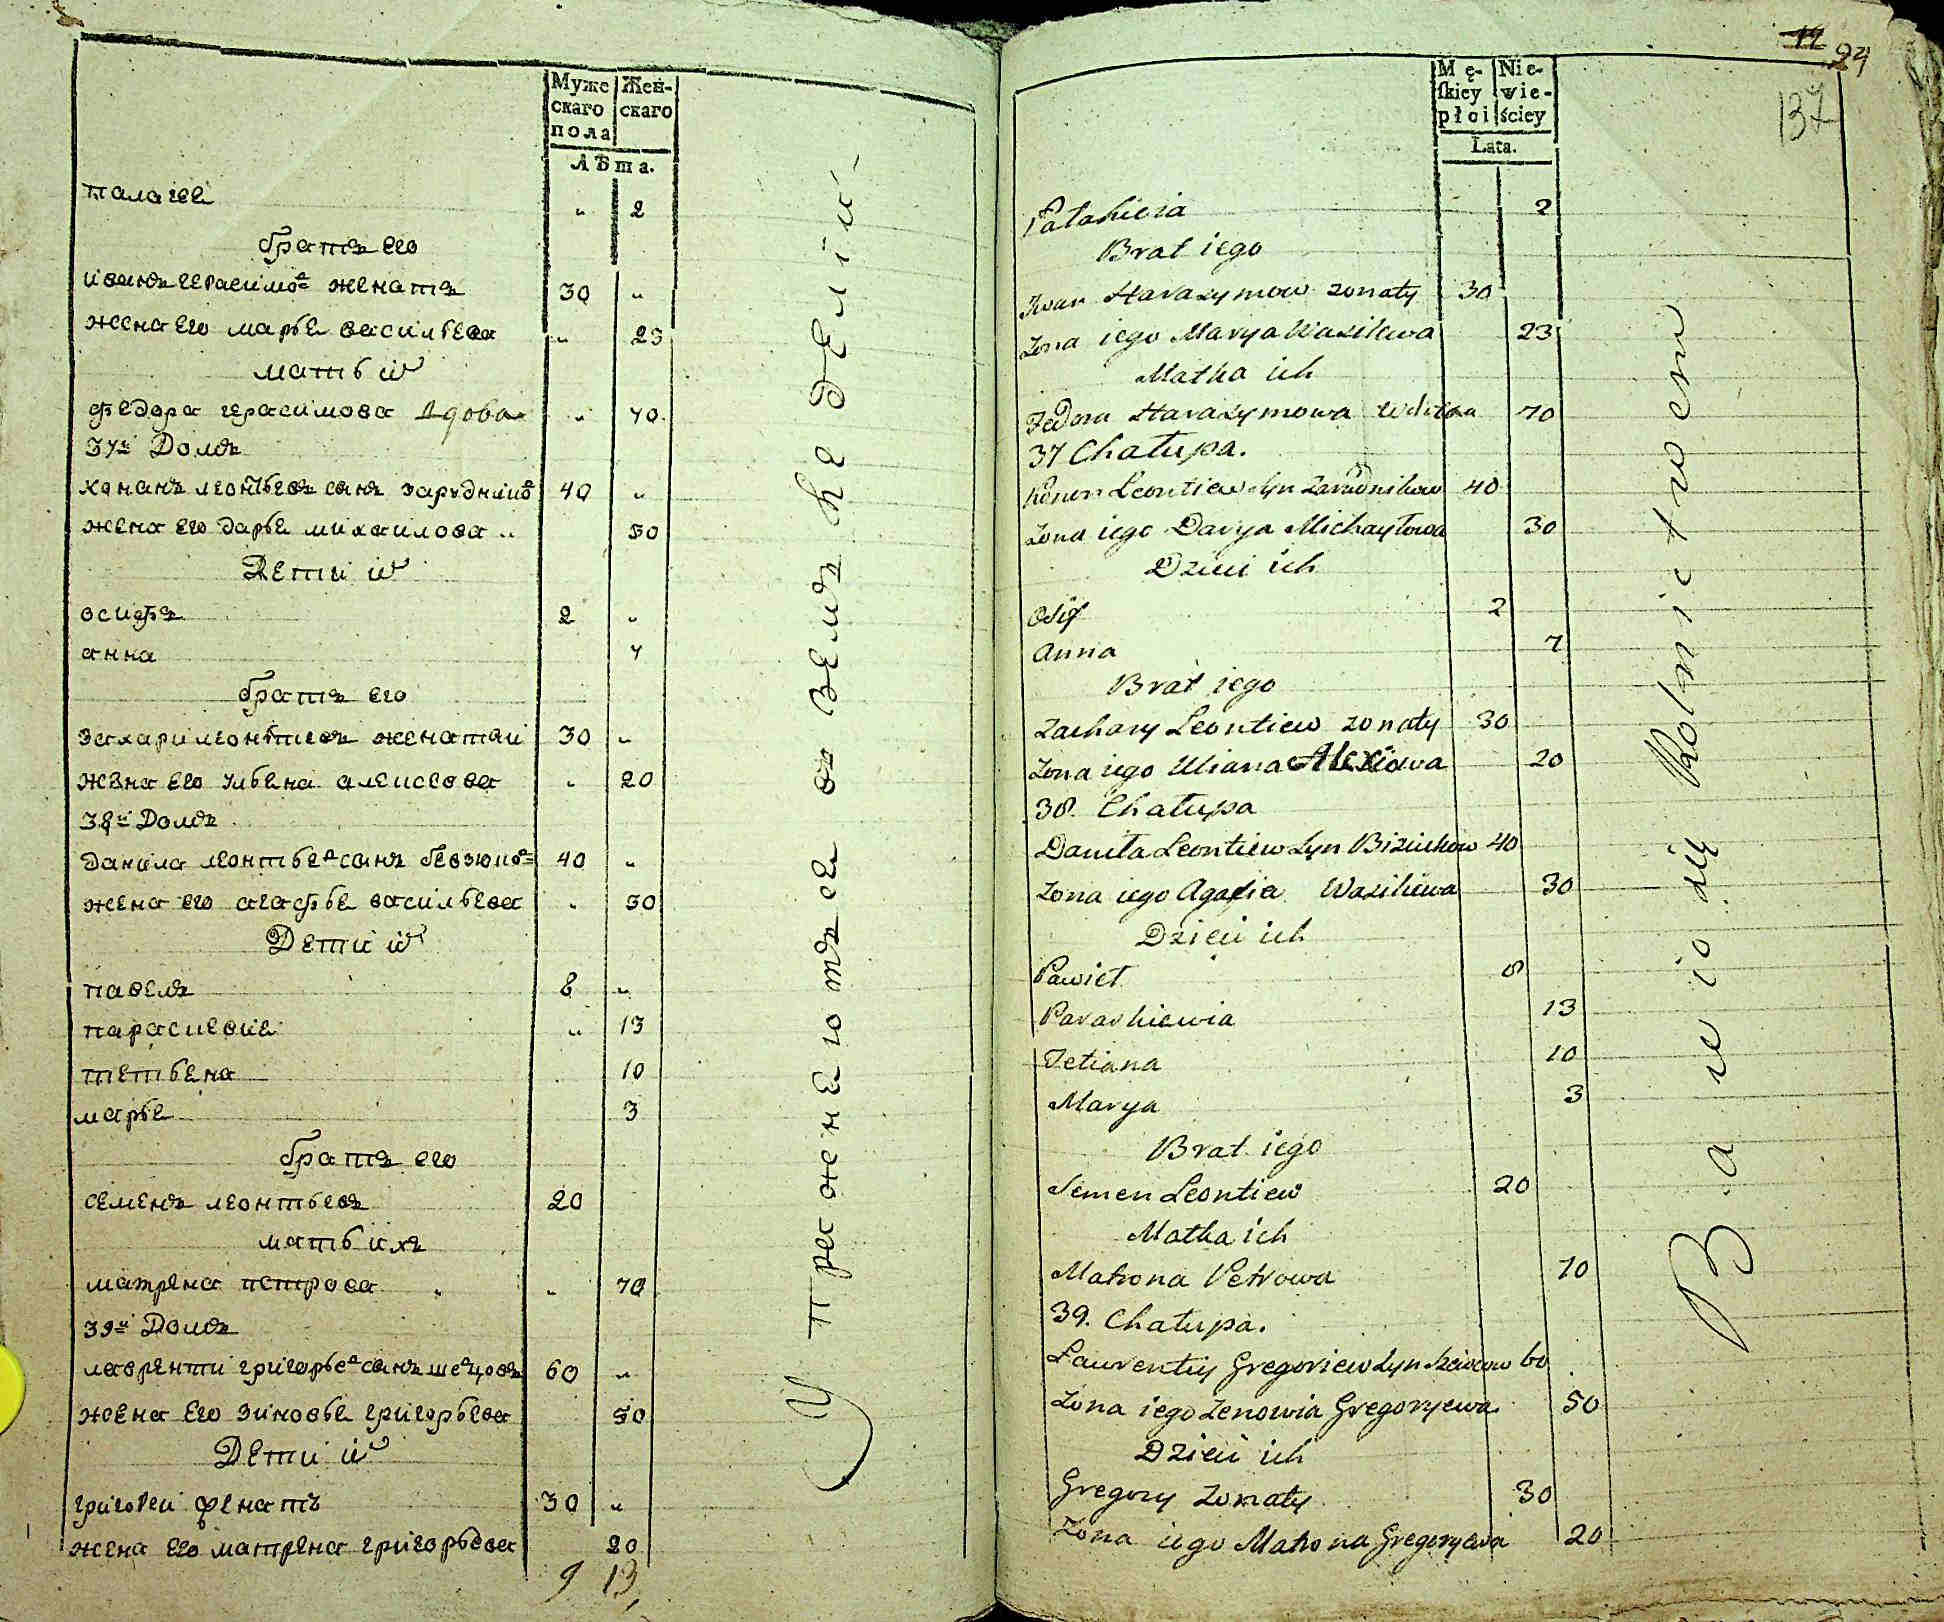 Муже Жен-
скаго скаго
пола
Лѣта.
палагея " 2
братъ его
иванъ герасимов женатъ 30 "
жена его марья васильева " 23
мать их
федора герасимова вдова " 70
37й Домъ
леонтьевъ сынъ 40 "
жена его дарья михаилова " 30
Дети их
осифъ 2 "
анна 7
братъ его
захари леонтьевъ женатый 30 "
жена его ульена алексеева " 20
38й Домъ
данила леонтьев сынъ 40 "
жена его агафья васильева " 30
Дети их
павелъ 8 "
парасковия " 13
тетьена 10
марья 3
братъ его
семенъ леонтьевъ 20
мать ихъ
матрена петрова " 70
39й Домъ
лаврентий григорьев сынъ шевцовъ 60 "
жена его зиновья григорьева 50
Дети их
григорей женатъ 30 "
жена его матрена григорьева 20
9 13
Упражняютъся въ земледелии
12 24
137
Mę- Nie-
ſkiey wie-
płci ściey
Lata.
Pałahieia 2
Brat iego
Iwan Harasymow zonaty 30
Zona iego Marya Wasilewa 23
Matka ich
Fedora Harasymowa wdowa 70
37 Chałupa.
Konon Leontiew syn Zarudnikow 40
Zona iego Darya Michayłowa 30
Dzieci ich
Osif 2
Anna 7
Brat iego
Zachary Leontiew zonaty 30
Zona iego Uliana Alexiowa 20
38. Chałupa
Daniła Leontiew syn Biziukow 40
Zona iego Agafia Wasilewa 30
Dzieci ich
Pawieł 8
Paraskiewia 13
Tetiana 10
Marya 3
Brat iego
Semen Leontiew 20
Matka ich
Matrona Petrowa 70
39. Chałupa.
Laurentiy Gregoriew syn Szewcow 60
Zona iego Zenowia Gregoryewa 50
Dzieci ich
Gregory zonaty 30
Zona iego Matrona Gregoryewa 20
Bawio się Rolnictwem